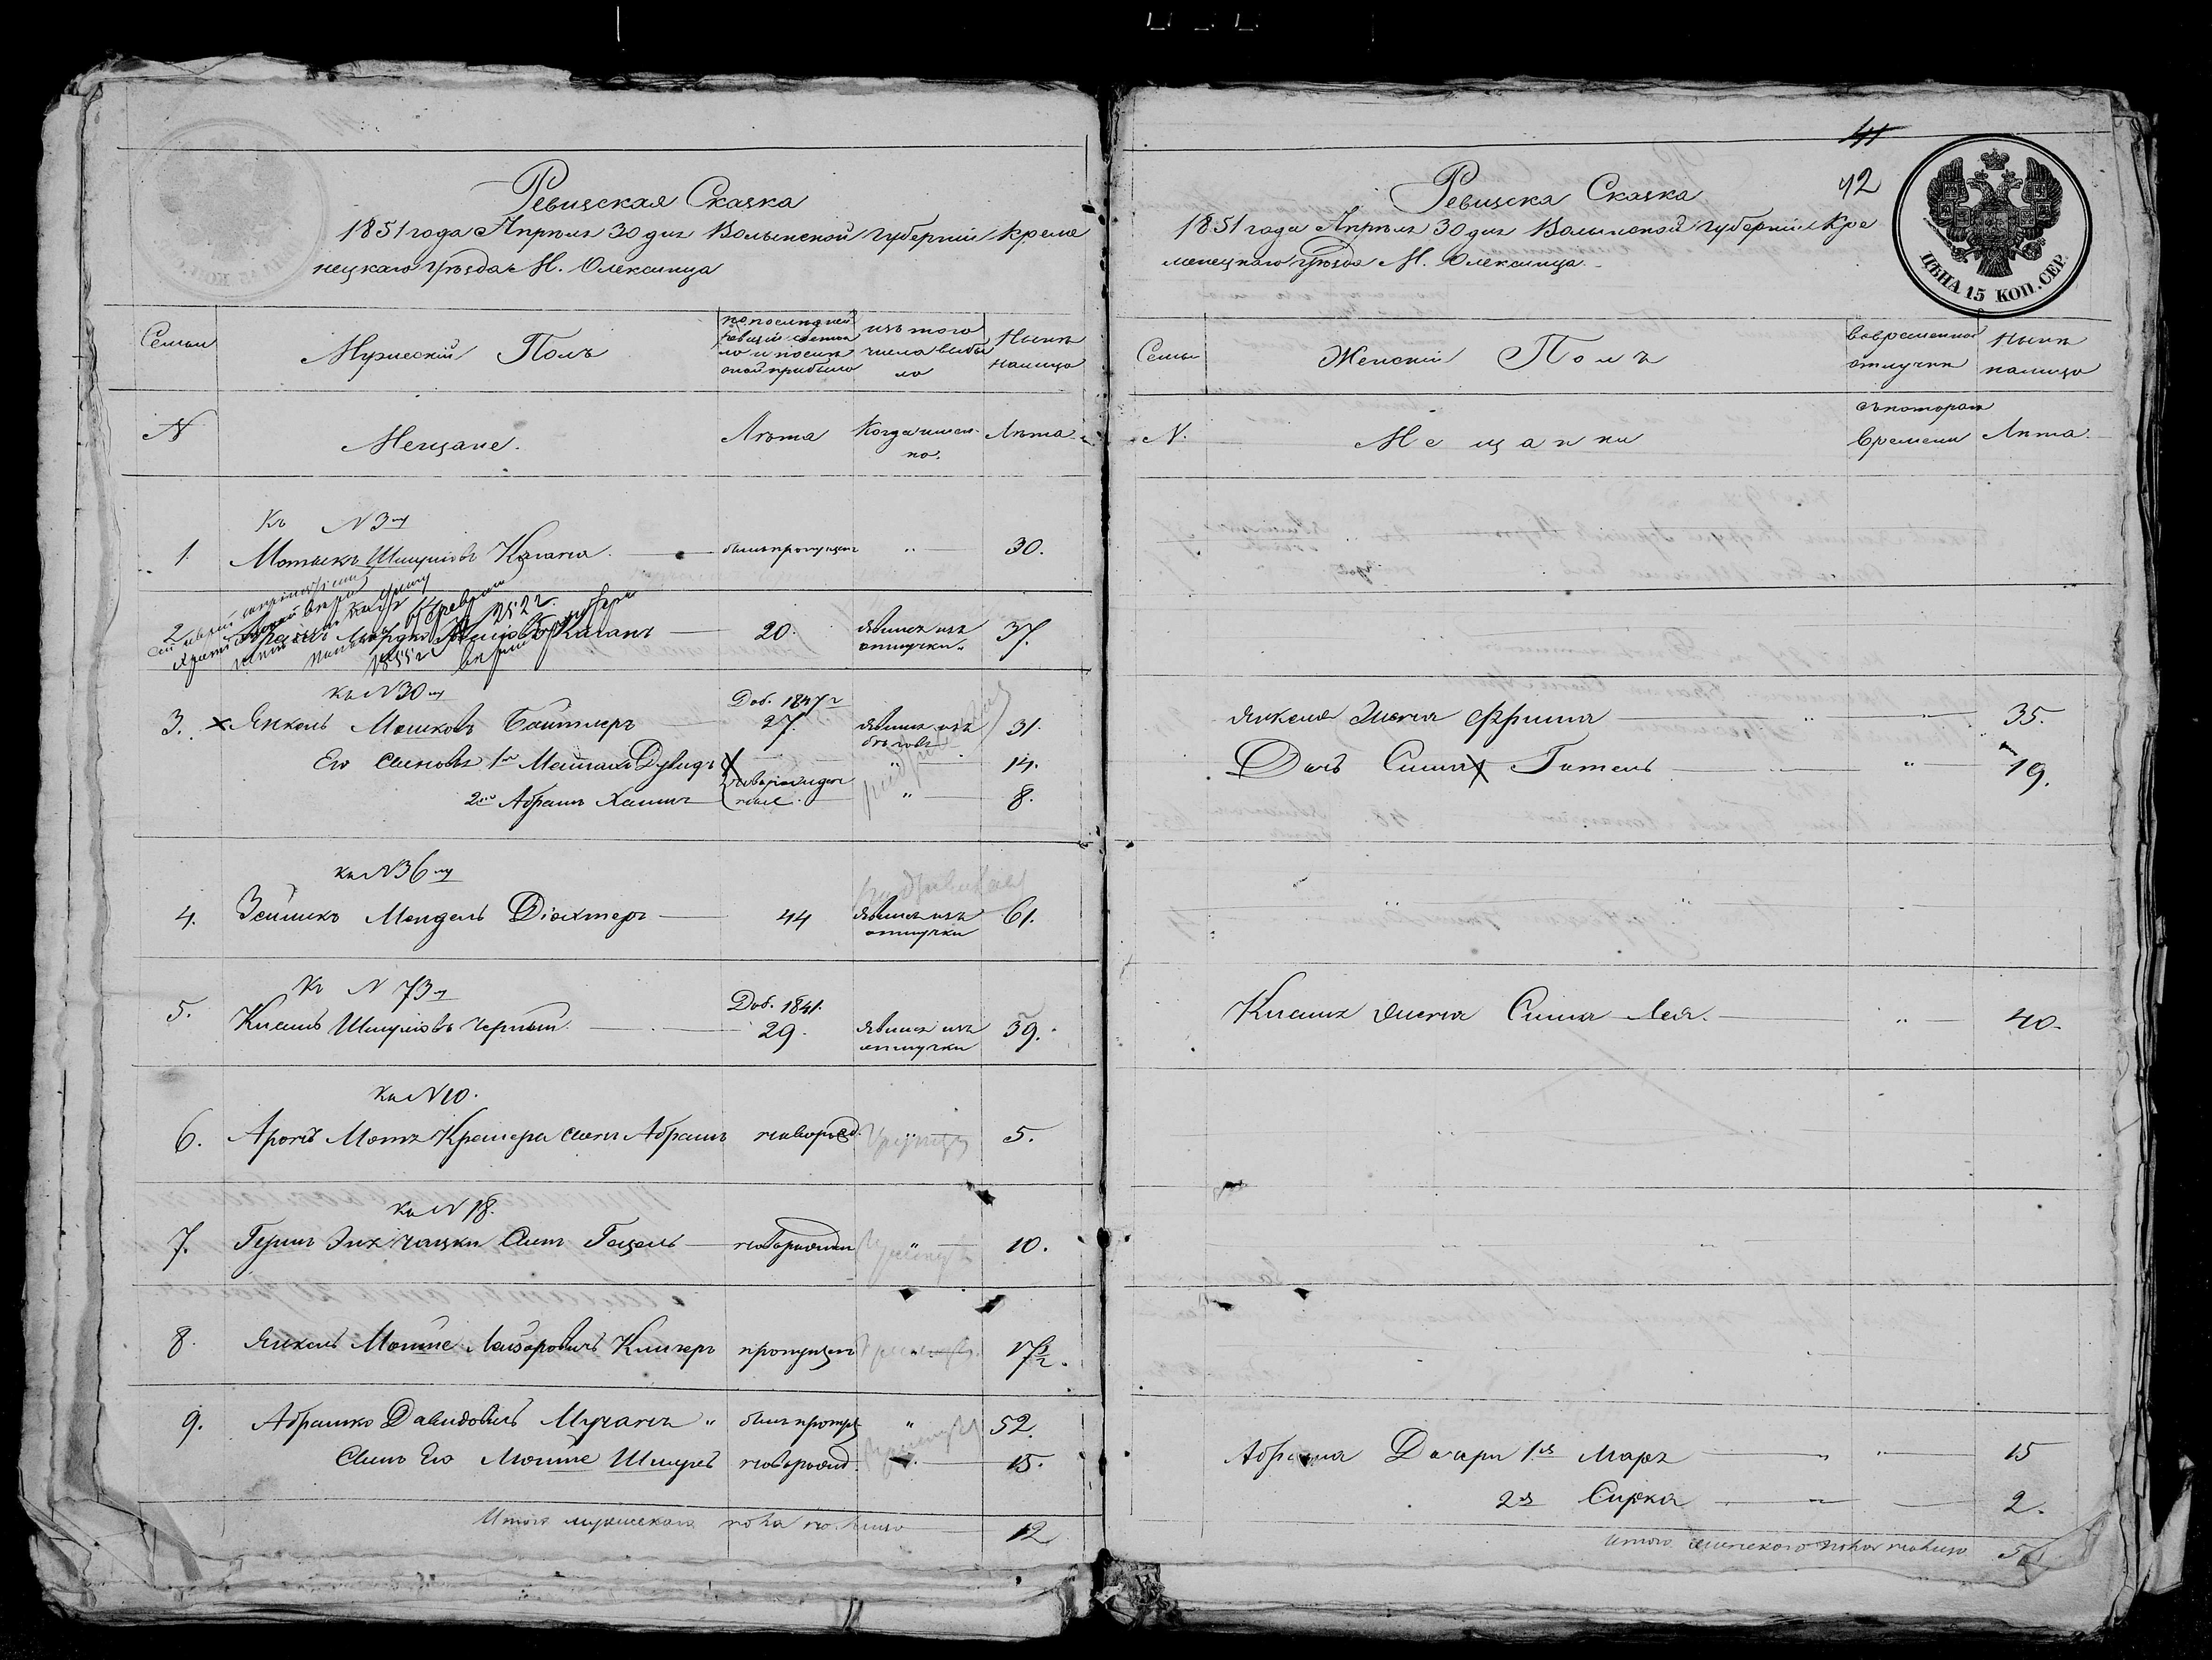 Ревизская Сказка
1851 года Апрѣля 30 дня Волынской Губерніи Креме
нецкаго Уѣзда М. Олексинца
Семьи
Мужескій Полъ
по последней
ревизіи состоя
ло и после
оной прибыло
изъ того
числа выбы
ло
Нынѣ
налицо
N
Мещане.
Лѣта
Когда имен
но.
Лѣта
Къ N 3му
1. Мотькъ Шмулiовъ Кагана былъ пропущенъ " 30.
2 20. явился изъ
отлучки 37.
къ N 30му
3. Янкель Мошковъ Байтлеръ Доб. 1847г
27. явился изъ
бѣговъ 31.
Его Сыновья 1й Мошко Дувидъ " 14.
2й Абрамъ Хаимъ новорожден
ные " 8.
къ N 36му
4. Зейликъ Мендель Діахтеръ 44 явился изъ
отлучки 61.
Къ N 73у
5. Кисиль Шмулiовъ Черный Доб. 1841.
29. явился изъ
отлучки 39.
къ N 10.
6. Аронъ Мотя Крамера сынъ Абрамъ новорожд. 5.
къ N 18.
7. Гершъ Зихъ Чацки Сынъ Гецель новорожден " 10.
8. Янкель Мошше Лейзеровичъ Клигеръ пропущенъ 17½.
9. Абрашко Давидовичъ Мучакъ " былъ пропущ " 52.
Сынъ Его Мошше Шмулъ новорожд. " 15.
Итого мужескаго пола на лицо 12
41
42
ЦѢНА 15 КОП. СЕР.
Ревизска Сказка
1851 года Апрѣля 30 дня Волынской Губерніи Кре
менецкаго Уѣзда М. Олексинца.
Семьи
Женскій Полъ
вовременной
отлучки
Нынѣ
налицо
N.
Мещанки
съкотораго
Времени
Лѣта.
Янкеля Жена Фрима " 35.
Дочь Сима Гитель " 19.
Кисиля Жена Сима Лея. " 40.
Абрама Дочери 1я Маря " 15
2я Сирка " 2.
Итого женскаго пола налицо 5